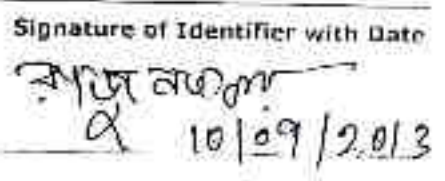 Signature of Identifier with Date
রাজু নস্কর
10/09/2013